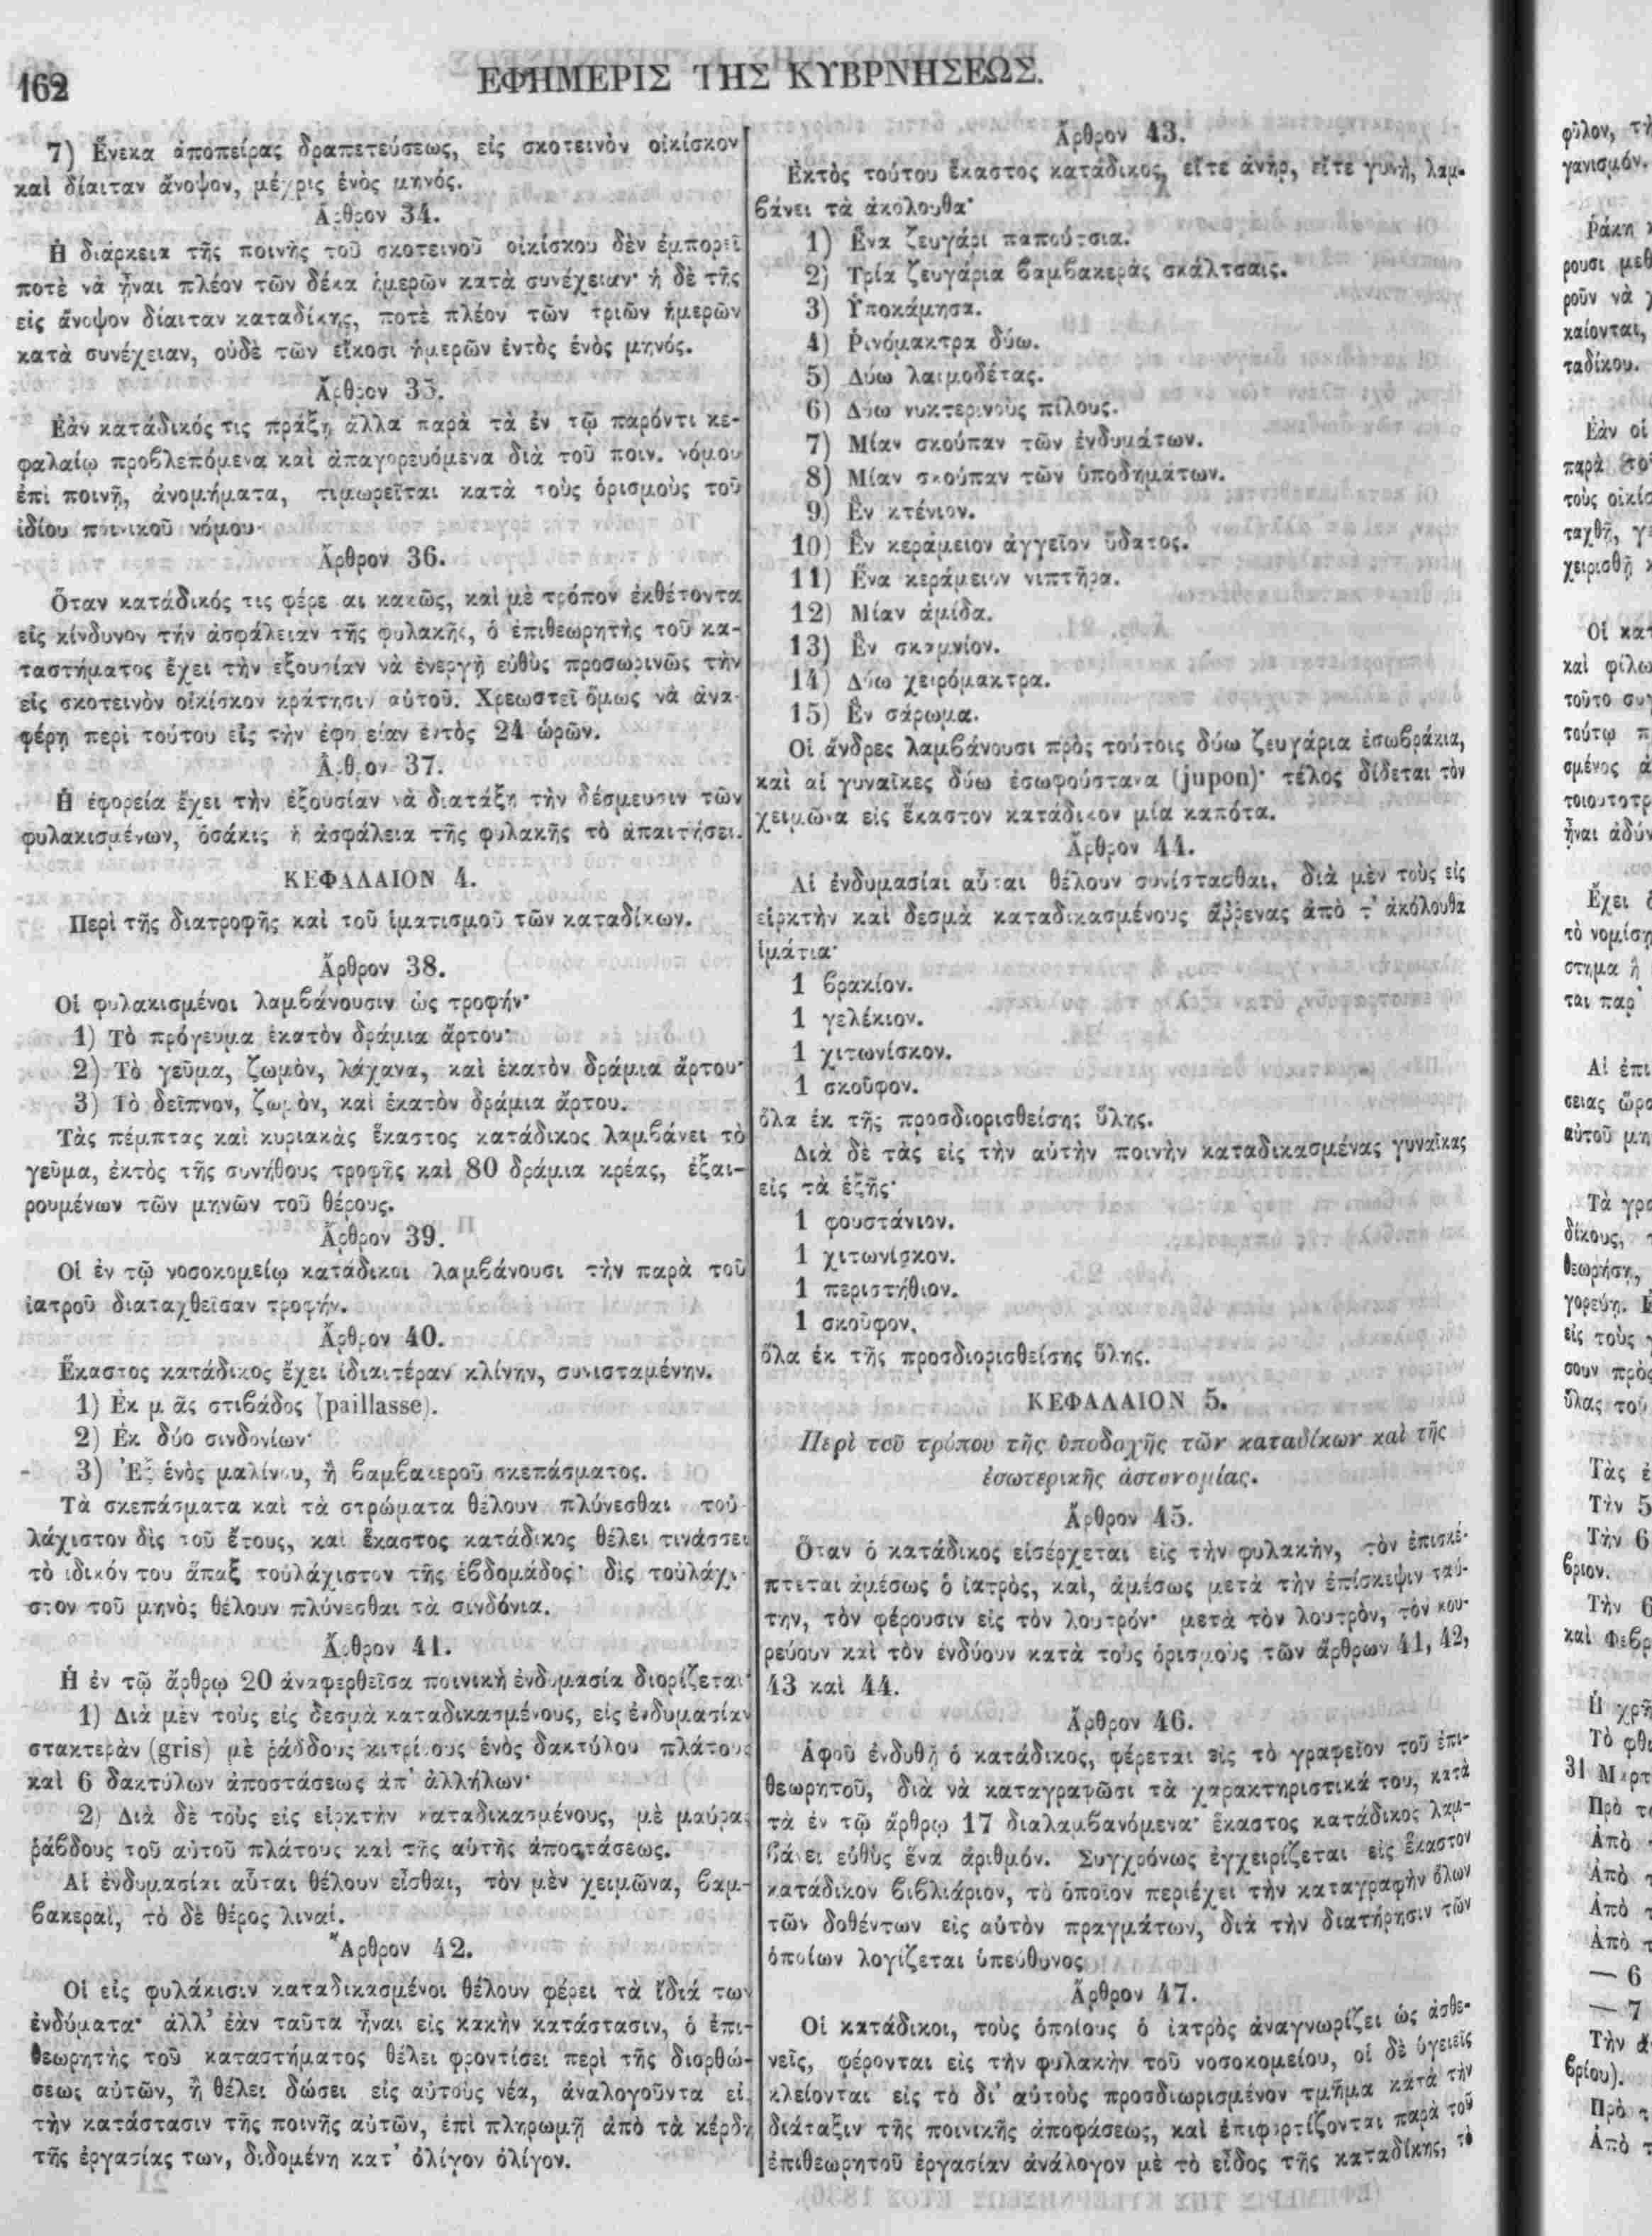 162
ΕΦΗΜΕΡΙΣ ΤΗΣ ΚΥΒΡΝΗΣΕΩΣ.
7) Ἕνεκα ἀποπείρας δραπετεύσεως, εἰς σκοτεινὸν οἰκίσκον
καὶ δίαιταν ἄνοψον, μέχρις ἑνὸς μηνός.
Ἄρθρον 34.
Ἡ διάρκεια τῆς ποινῆς τοῦ σκοτεινοῦ οἰκίσκου δὲν ἐμπορεῖ
ποτὲ νὰ ἦναι πλέον τῶν δέκα ἡμερῶν κατὰ συνέχειαν· ἡ δὲ τῆς
εἰς ἄνοψον δίαιταν καταδίκης, ποτὲ πλέον τῶν τριῶν ἡμερῶν
κατὰ συνέχειαν, οὐδὲ τῶν εἴκοσι ἡμερῶν ἐντὸς ἑνὸς μηνός.
Ἄρθρον 35.
Ἐὰν κατάδικός τις πράξῃ ἄλλα παρὰ τὰ ἐν τῷ παρόντι κε-
φαλαίῳ προβλεπόμενα καὶ ἀπαγορευόμενα διὰ τοῦ ποιν. νόμου
ἐπὶ ποινῇ, ἀνομήματα, τιμωρεῖται κατὰ τοὺς ὁρισμοὺς τοῦ
ἰδίου ποινικοῦ νόμου·
Ἄρθρον 36.
Ὅταν κατάδικός τις φέρεται κακῶς, καὶ μὲ τρόπον ἐκθέτοντα
εἰς κίνδυνον τὴν ἀσφάλειαν τῆς φυλακῆς, ὁ ἐπιθεωρητὴς τοῦ κα-
ταστήματος ἔχει τὴν ἐξουσίαν νὰ ἐνεργῇ εὐθὺς προσωρινῶς τὴν
εἰς σκοτεινὸν οἰκίσκον κράτησιν αὐτοῦ. Χρεωστεῖ ὅμως νὰ ἀνα-
φέρῃ περὶ τούτου εἰς τὴν ἐφορείαν ἐντὸς 24 ὡρῶν.
Ἄρθρον 37.
Ἡ ἐφορεία ἔχει τὴν ἐξουσίαν νὰ διατάξῃ τὴν δέσμευσιν τῶν
φυλακισμένων, ὁσάκις ἡ ἀσφάλεια τῆς φυλακῆς τὸ ἀπαιτήσει.
ΚΕΦΑΛΑΙΟΝ 4.
Περὶ τῆς διατροφῆς καὶ τοῦ ἱματισμοῦ τῶν καταδίκων.
Ἄρθρον 38.
Οἱ φυλακισμένοι λαμβάνουσιν ὡς τροφήν·
1) Τὸ πρόγευμα ἑκατὸν δράμια ἄρτου·
2) Τὸ γεῦμα, ζωμὸν, λάχανα, καὶ ἑκατὸν δράμια ἄρτου·
3) Τὸ δεῖπνον, ζωμὸν, καὶ ἑκατὸν δράμια ἄρτου.
Τὰς πέμπτας καὶ κυριακὰς ἕκαστος κατάδικος λαμβάνει τὸ
γεῦμα, ἐκτὸς τῆς συνήθους τροφῆς καὶ 80 δράμια κρέας, ἐξαι-
ρουμένων τῶν μηνῶν τοῦ θέρους.
Ἄρθρον 39.
Οἱ ἐν τῷ νοσοκομείῳ κατάδικοι λαμβάνουσι τὴν παρὰ τοῦ
ἰατροῦ διαταχθεῖσαν τροφήν.
Ἄρθρον 40.
Ἕκαστος κατάδικος ἔχει ἰδιαιτέραν κλίνην, συνισταμένην.
1) Ἐκ μιᾶς στιβάδος (paillasse).
2) Ἐκ δύο σινδονίων·
3) Ἐξ ἑνὸς μαλίνου, ἢ βαμβακεροῦ σκεπάσματος.
Τὰ σκεπάσματα καὶ τὰ στρώματα θέλουν πλύνεσθαι τοὐ-
λάχιστον δὶς τοῦ ἔτους, καὶ ἕκαστος κατάδικος θέλει τινάσσει
τὸ ἰδικόν του ἅπαξ τοὐλάχιστον τῆς ἑβδομάδος· δὶς τοὐλάχι-
στον τοῦ μηνὸς θέλουν πλύνεσθαι τὰ σινδόνια.
Ἄρθρον 41.
Ἡ ἐν τῷ ἄρθρῳ 20 ἀναφερθεῖσα ποινικὴ ἐνδυμασία διορίζεται·
1) Διὰ μὲν τοὺς εἰς δεσμὰ καταδικασμένους, εἰς ἐνδυμασίαν
στακτερὰν (gris) μὲ ῥάδδους κιτρίνους ἑνὸς δακτύλου πλάτους
καὶ 6 δακτύλων ἀποστάσεως ἀπ' ἀλλήλων·
2) Διὰ δὲ τοὺς εἰς εἱρκτὴν καταδικασμένους, μὲ μαύρας
ῥάβδους τοῦ αὐτοῦ πλάτους καὶ τῆς αὐτῆς ἀποστάσεως.
Αἱ ἐνδυμασίαι αὗται θέλουν εἶσθαι, τὸν μὲν χειμῶνα, βαμ-
βακεραὶ, τὸ δὲ θέρος λιναί.
Ἄρθρον 42.
Οἱ εἰς φυλάκισιν καταδικασμένοι θέλουν φέρει τὰ ἴδιά των
ἐνδύματα· ἀλλ' ἐὰν ταῦτα ἦναι εἰς κακὴν κατάστασιν, ὁ ἐπι-
θεωρητὴς τοῦ καταστήματος θέλει φροντίσει περὶ τῆς διορθώ-
σεως αὐτῶν, ἢ θέλει δώσει εἰς αὐτοὺς νέα, ἀναλογοῦντα εἰς
τὴν κατάστασιν τῆς ποινῆς αὐτῶν, ἐπὶ πληρωμῇ ἀπὸ τὰ κέρδη
τῆς ἐργασίας των, διδομένη κατ' ὀλίγον ὀλίγον.
Ἄρθρον 43.
Ἐκτὸς τούτου ἕκαστος κατάδικος, εἴτε ἀνὴρ, εἴτε γυνὴ, λαμ-
βάνει τὰ ἀκόλουθα·
1) Ἕνα ζευγάρι παπούτσια.
2) Τρία ζευγάρια βαμβακερὰς σκάλτσαις.
3) Ὑποκάμησα.
4) Ῥινόμακτρα δύω.
5) Δύω λαιμοδέτας.
6) Δύω νυκτερινοὺς πίλους.
7) Μίαν σκούπαν τῶν ἐνδυμάτων.
8) Μίαν σκούπαν τῶν ὑποδημάτων.
9) Ἓν κτένιον.
10) Ἓν κεράμειον ἀγγεῖον ὕδατος.
11) Ἕνα κεράμειον νιπτῆρα.
12) Μίαν ἀμίδα.
13) Ἓν σκαμνίον.
14) Δύω χειρόμακτρα.
15) Ἓν σάρωμα.
Οἱ ἄνδρες λαμβάνουσι πρὸς τούτοις δύω ζευγάρια ἐσωβράκια,
καὶ αἱ γυναῖκες δύω ἐσωφούστανα (jupon)· τέλος δίδεται τὸν
χειμῶνα εἰς ἕκαστον κατάδικον μία καπότα.
Ἄρθρον 44.
Αἱ ἐνδυμασίαι αὗται θέλουν συνίστασθαι, διὰ μὲν τοὺς εἰς
εἱρκτὴν καὶ δεσμὰ καταδικασμένους ἄῤῥενας ἀπὸ τ' ἀκόλουθα
ἱμάτια·
1 βρακίον.
1 γελέκιον.
1 χιτωνίσκον.
1 σκοῦφον.
ὅλα ἐκ τῆς προσδιορισθείσης ὕλης.
Διὰ δὲ τὰς εἰς τὴν αὐτὴν ποινὴν καταδικασμένας γυναῖκας
εἰς τὰ ἑξῆς·
1 φουστάνιον.
1 χιτωνίσκον.
1 περιστήθιον.
1 σκοῦφον.
ὅλα ἐκ τῆς προσδιορισθείσης ὕλης.
ΚΕΦΑΛΑΙΟΝ 5.
Περὶ τοῦ τρόπου τῆς ὑποδοχῆς τῶν καταδίκων καὶ τῆς
ἐσωτερικῆς ἀστυνομίας.
Ἄρθρον 45.
Ὅταν ὁ κατάδικος εἰσέρχεται εἰς τὴν φυλακὴν, τὸν ἐπισκέ-
πτεται ἀμέσως ὁ ἰατρὸς, καὶ, ἀμέσως μετὰ τὴν ἐπίσκεψιν ταύ-
την, τὸν φέρουσιν εἰς τὸν λουτρόν· μετὰ τὸν λουτρὸν, τὸν κου-
ρεύουν καὶ τὸν ἐνδύουν κατὰ τοὺς ὁρισμοὺς τῶν ἄρθρων 41, 42,
43 καὶ 44.
Ἄρθρον 46.
Ἀφοῦ ἐνδυθῇ ὁ κατάδικος, φέρεται εἰς τὸ γραφεῖον τοῦ ἐπι-
θεωρητοῦ, διὰ νὰ καταγραφῶσι τὰ χαρακτηριστικά του, κατὰ
τὰ ἐν τῷ ἄρθρῳ 17 διαλαμβανόμενα· ἕκαστος κατάδικος λαμ-
βάνει εὐθὺς ἕνα ἀριθμόν. Συγχρόνως ἐγχειρίζεται εἰς ἕκαστον
κατάδικον βιβλιάριον, τὸ ὁποῖον περιέχει τὴν καταγραφὴν ὅλων
τῶν δοθέντων εἰς αὐτὸν πραγμάτων, διὰ τὴν διατήρησιν τῶν
ὁποίων λογίζεται ὑπεύθυνος
Ἄρθρον 47.
Οἱ κατάδικοι, τοὺς ὁποίους ὁ ἰατρὸς ἀναγνωρίζει ὡς ἀσθε-
νεῖς, φέρονται εἰς τὴν φυλακὴν τοῦ νοσοκομείου, οἱ δὲ ὑγιεῖς
κλείονται εἰς τὸ δι' αὐτοὺς προσδιωρισμένον τμῆμα κατὰ τὴν
διάταξιν τῆς ποινικῆς ἀποφάσεως, καὶ ἐπιφορτίζονται παρὰ τοῦ
ἐπιθεωρητοῦ ἐργασίαν ἀνάλογον μὲ τὸ εἶδος τῆς καταδίκης, τὸ